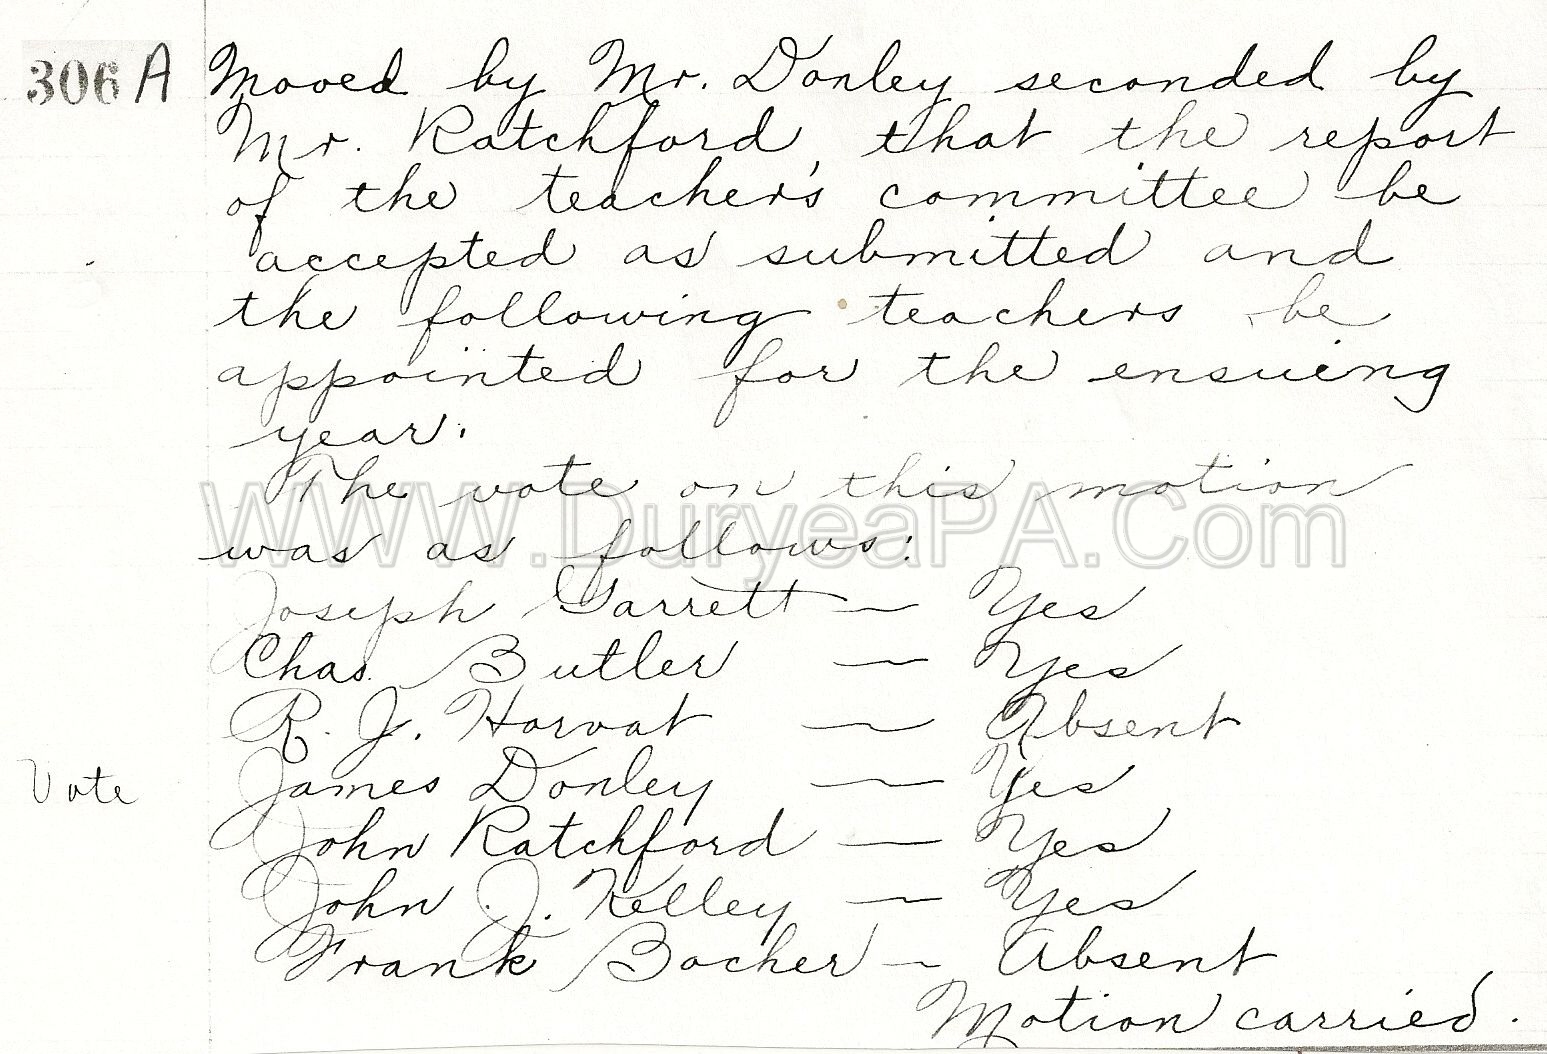 306 A Moved by Mr. Donley seconded by
Mr. Ratchford, that the report
of the teacher's committee be
accepted as submitted and
the following teachers be
appointed for the ensueing
year.
The vote on this motion
WWW.DuryeaPA.Com
was as follows:
Joseph Garrett — Yes
Chas. Butler — Yes
R. J. Horvat — Absent
Vote James Donley — Yes
John Ratchford — Yes
John J. Kelley — Yes
Frank Bocher — Absent
Motion carried.